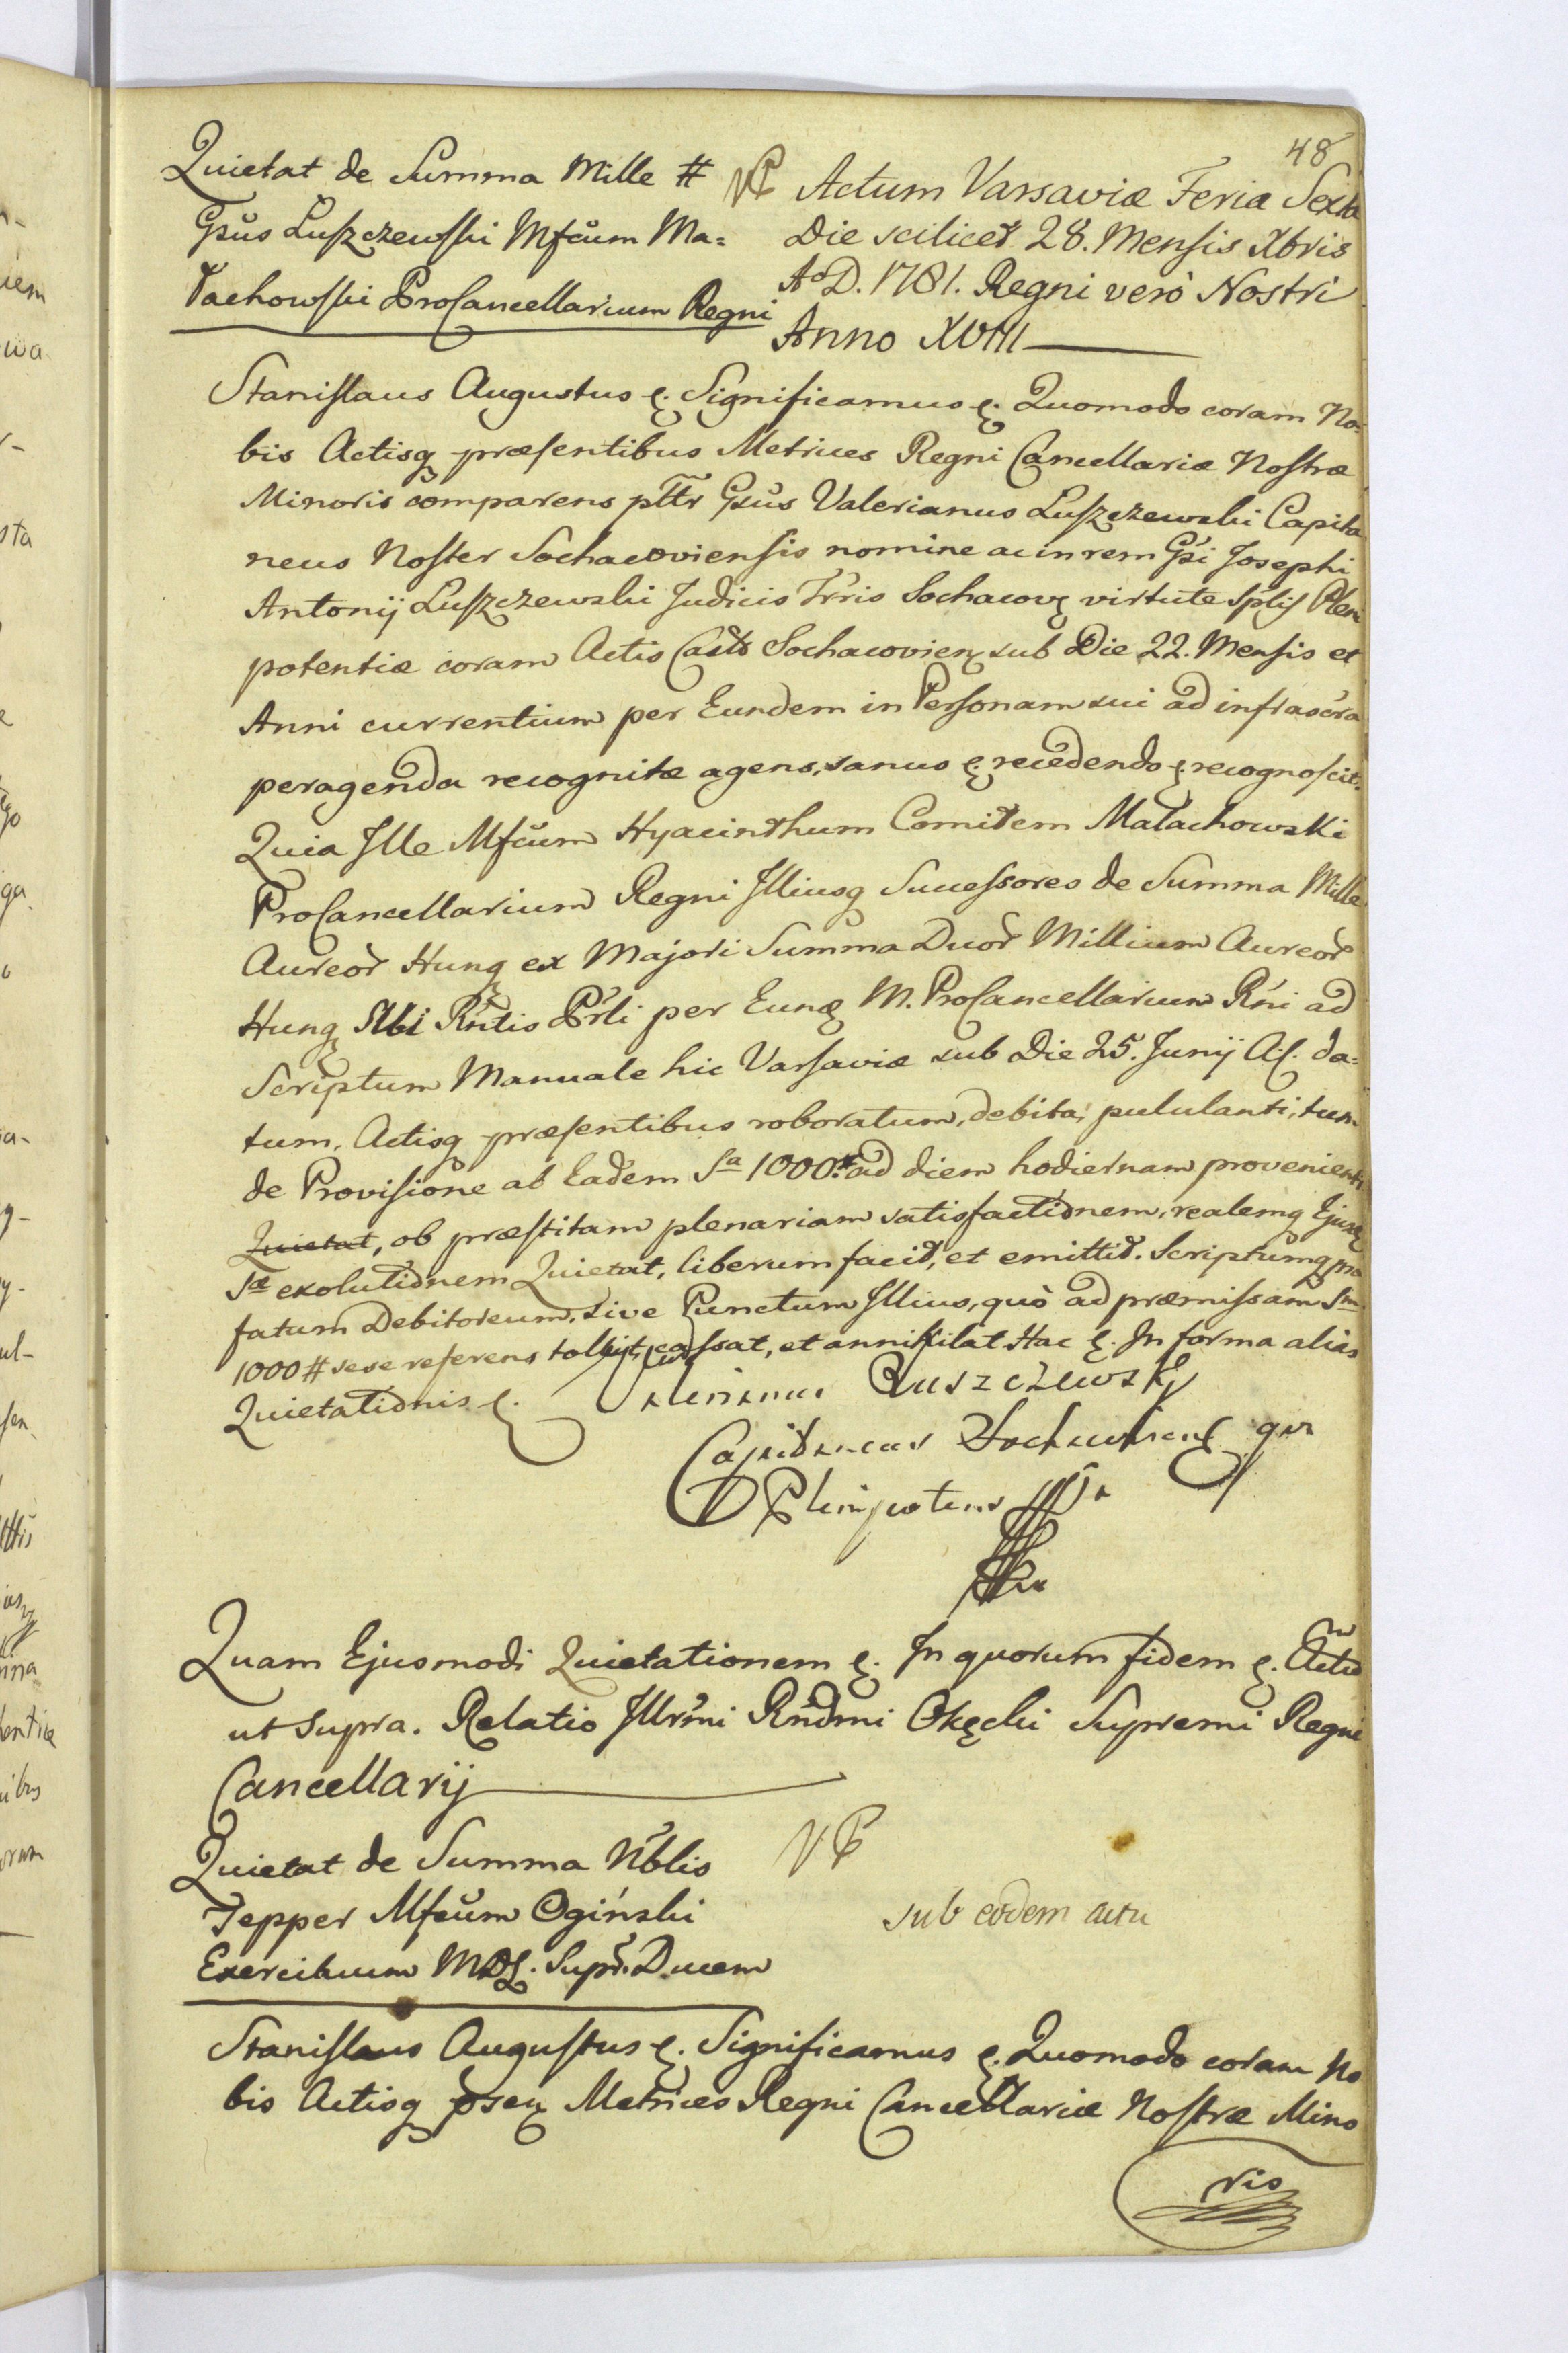 48
Quietat de Summa Mille #
Gsus Luszczewski Mfcum Ma=
łachowski ProCancellarium Regni
VP
Actum Varsaviæ Feria Sexta
Die scilicet 28. Mensis Xbris
Ao D. 1781. Regni verò Nostri
Anno XVIII
Stanislaus Augustus &. Significamus &. Quomodo coram No=
bis Actisq præsentibus Metrices Regni Cancellariæ Nostræ
Minoris comparens pttr Gsus Valerianus Luszczewski Capita
neus Noster Sochacoviensis nomine ac in rem Gsi Josephi
Antonij Luszczewski Judicis Trris Sochacov virtute splis Pleni
potentiæ coram Actis Castr Sochacovien sub Die 22. Mensis et
Anni currentium per Eundem in Personam sui ad infrascra
peragenda recognitæ agens, sanus &. recedendo &. recognoscit.
Quia Ille Mfcum Hyacinthum Comitem Małachowski
ProCancellarium Regni Illiusq Successores de Summa Mille
Aureor Hung ex Majori Summa Duor Millium Aureor
Hung Sibi Rntis Prli per Eund M. ProCancellarium Rni ad
Scriptum Manuale hic Varsaviæ sub Die 25. Junij A. da=
tum, Actisq præsentibus roboratum, debita, pululanti, tum
de Provisione ab Eadem Sa 1000 # ad diem hodiernam provenienti
Quietat, ob præstitam plenariam satisfactionem, realemq Ejusd
Sæ exolutionem Quietat, liberum facit, et emittit. Scriptumq præ
fatum Debitoreum, sive Punctum Illius, quò ad præmissam Sm
1000 # sese referens tollit, cassat, et annihilat Hac &. In forma alias
Quietationis &.
Valerianus Luszczewski
Capitaneus Sochacovien qua
Plenipotens
Quam Ejusmodi Quietationem &. In quorum fidem &. Actu
ut supra. Relatio Illrmi Rndmi Okęcki Supremi Regni
Cancellarij
Quietat de Summa Nblis
Tepper Mfcum Ogiński
Exercituum MDL. Supr. Ducem
VP
sub eodem actu
Stanislaus Augustus &. Significamus &. Quomodo coram No
bis Actisq præsen Metrices Regni Cancellariæ Nostræ Mino
ris